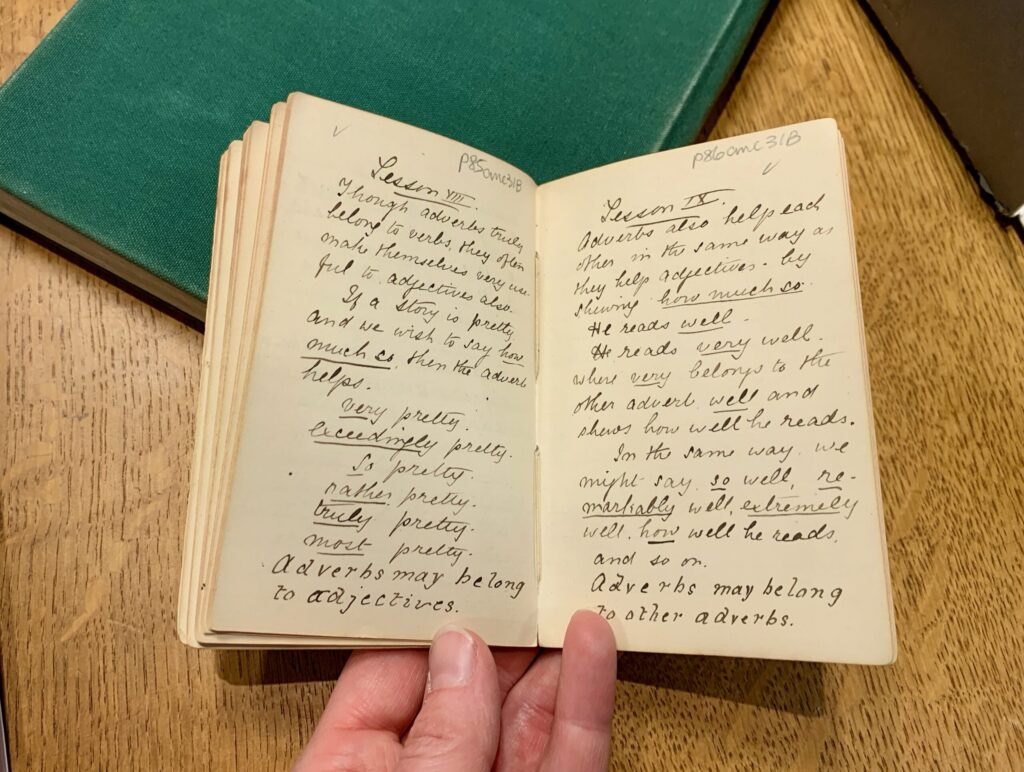 p85cmc31B
Lesson VIII.
Though adverbs truly
belong to verbs, they often
make themselves very use-
ful to adjectives also.
If a story is pretty,
and we wish to say how
much so, then the adverb
helps.
very pretty.
exceedingly pretty.
so pretty.
rather pretty.
truly pretty.
most pretty.
Adverbs may belong
to adjectives.
p86cmc31B
Lesson IX.
Adverbs also help each
other in the same way as
they help adjectives - by
shewing how much so.
He reads well.
He reads very well.
where very belongs to the
other adverb well and
shews how well he reads.
In the same way we
might say so well, re-
markably well, extremely
well, how well he reads,
and so on.
Adverbs may belong
to other adverbs.